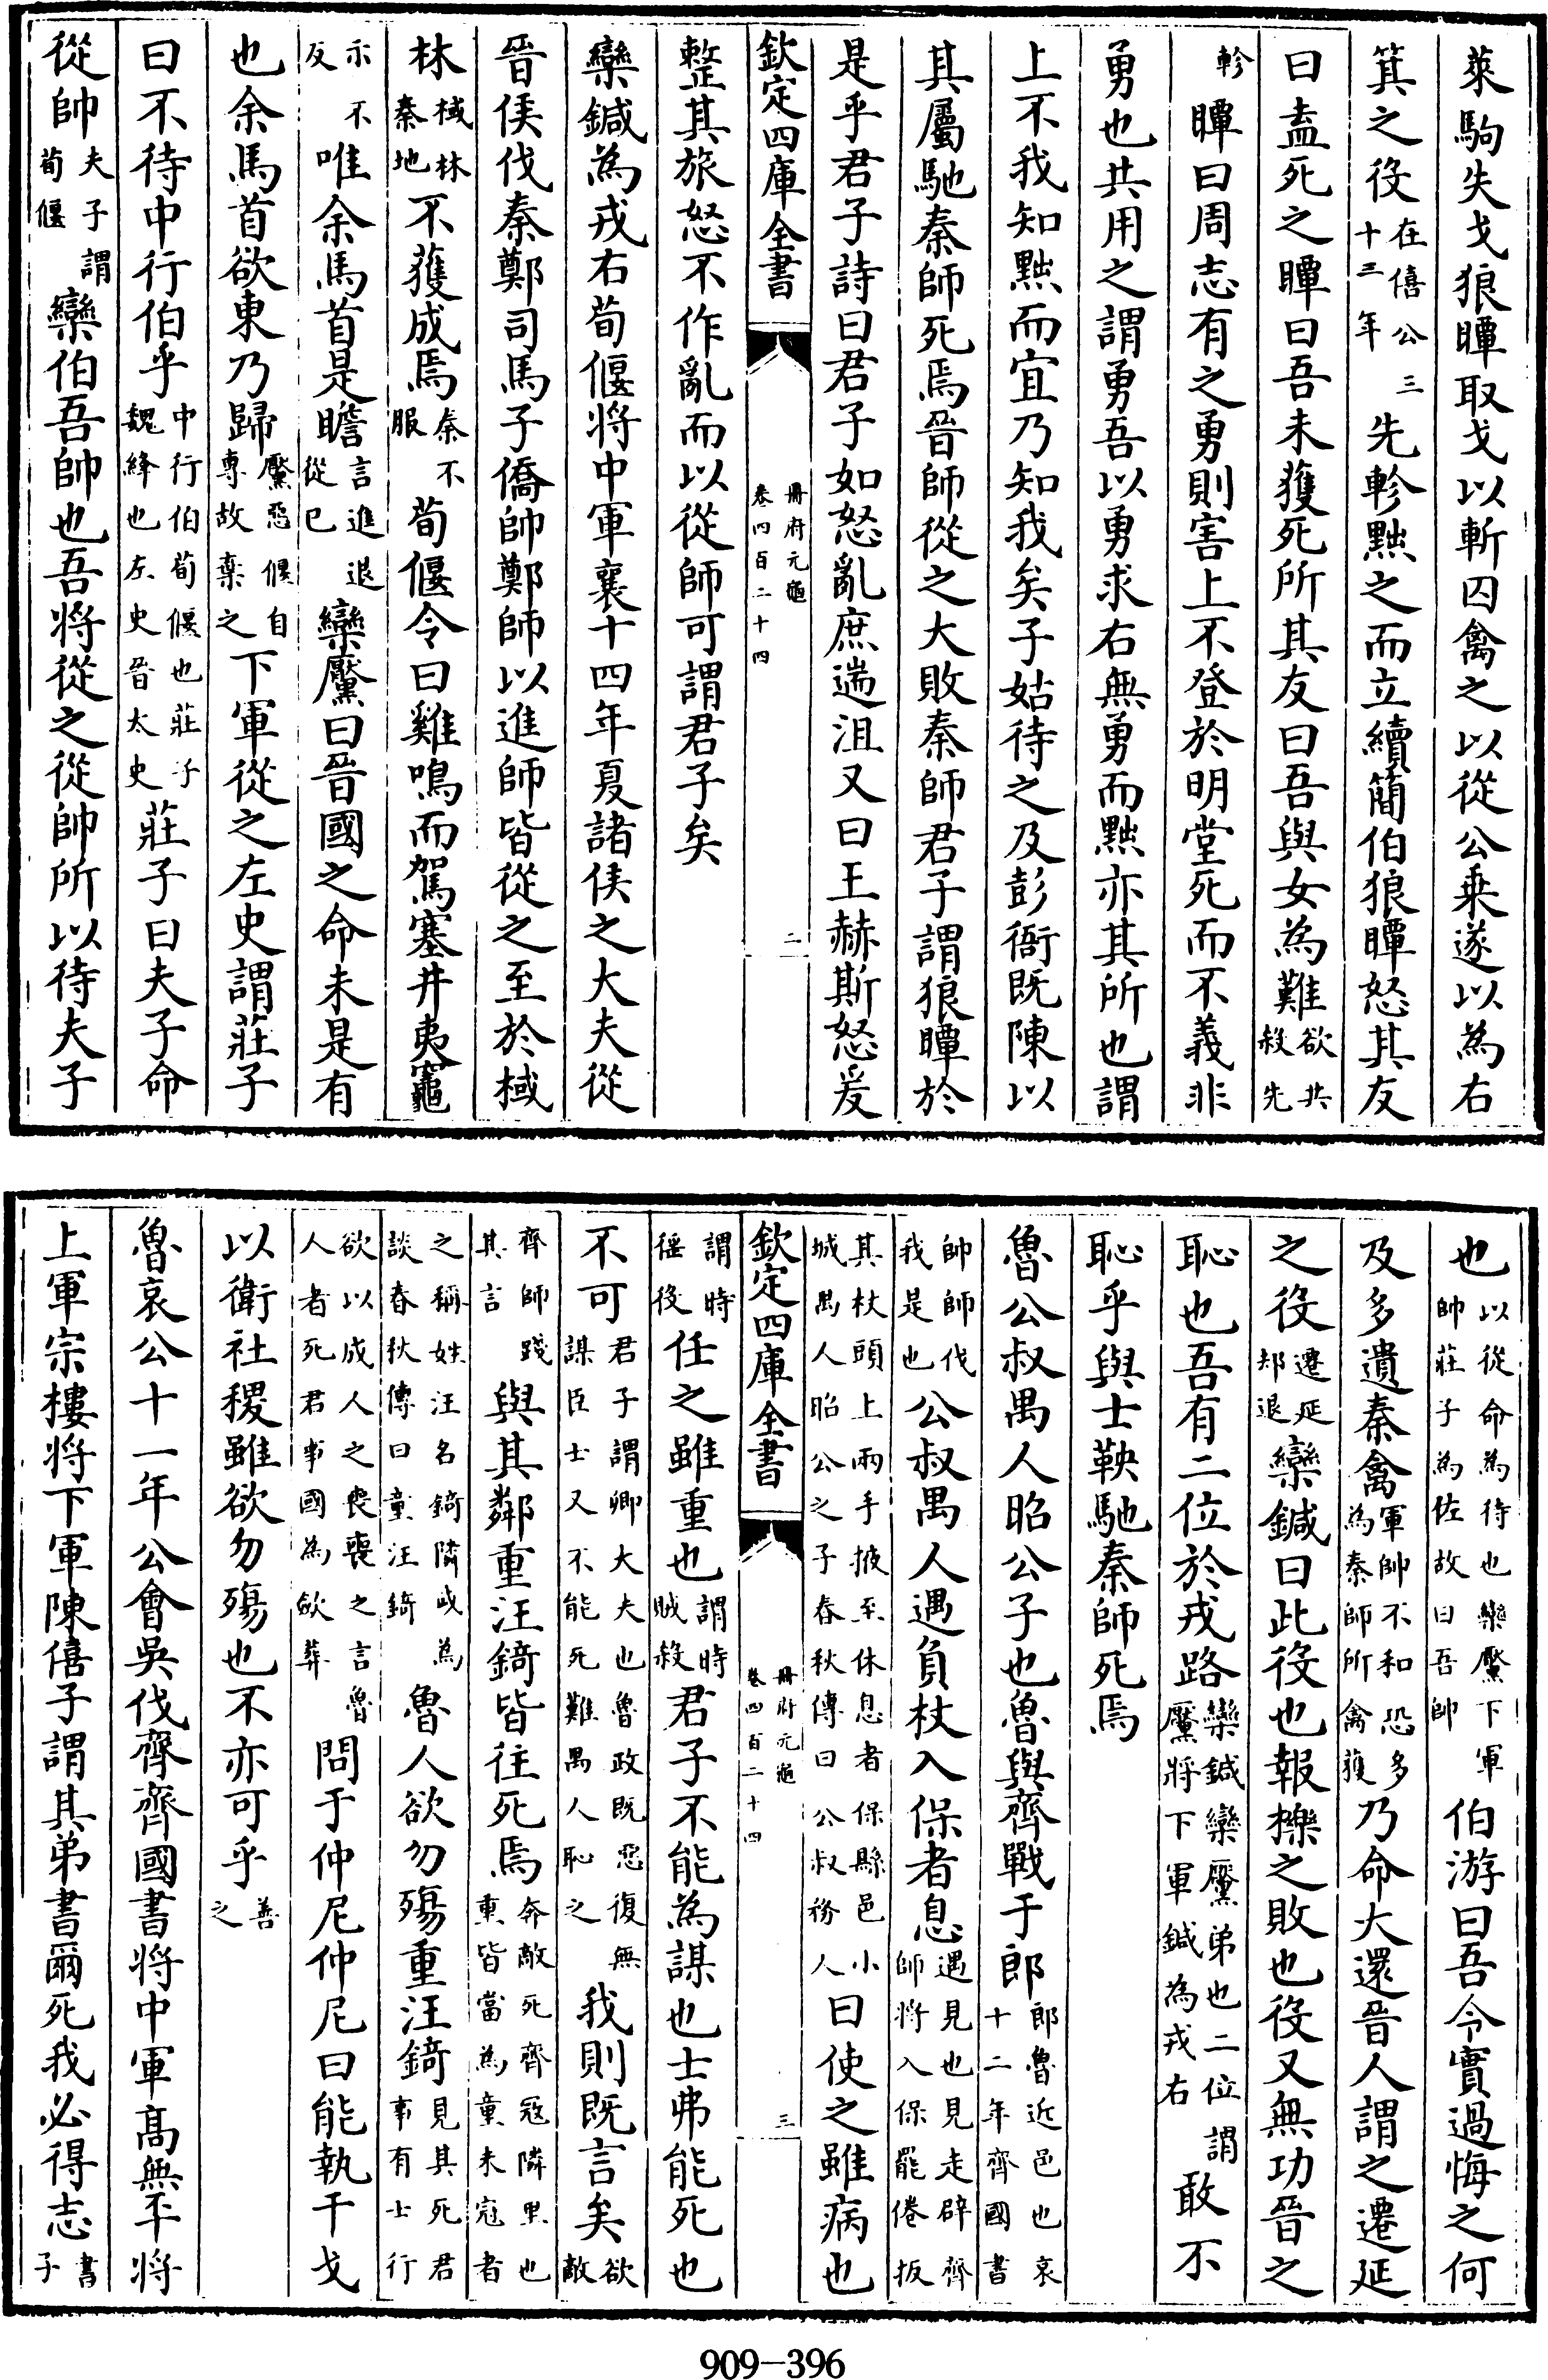 萊駒失戈狼瞫取戈以斬囚禽之以從公乗遂以為右
箕之役在僖公三十三年先軫黜之而立續簡伯狼瞫怒其友
曰盍死之瞫曰吾未獲死所其友曰吾與女為難欲共殺先
軫瞫曰周志有之勇則害上不登於明堂死而不義非
勇也共用之謂勇吾以勇求右無勇而黜亦其所也謂
上不我知黜而宜乃知我矣子姑待之及彭衙既陳以
其屬馳秦師死焉晉師從之大敗秦師君子謂狼瞫於
是乎君子詩曰君子如怒亂庶遄沮又曰王赫斯怒爰
欽定四庫全書 冊府元龜卷四百二十四 二
整其旅怒不作亂而以從師可謂君子矣
欒鍼為戎右荀偃將中軍襄十四年夏諸侯之大夫從
晉侯伐秦鄭司馬子僑帥鄭師以進師皆從之至於棫
林棫林秦地不獲成焉秦不服荀偃令曰雞鳴而駕塞井夷竈
示不反唯余馬首是瞻言進退從已欒黶曰晉國之命未是有
也余馬首欲東乃歸黶惡偃自專故棄之下軍從之左史謂莊子
曰不待中行伯乎中行伯荀偃也莊子魏絳也左史晉太史莊子曰夫子命
從帥夫子謂荀偃欒伯吾帥也吾將從之從帥所以待夫子
也以從命為待也欒黶下軍帥莊子為佐故曰吾帥伯游曰吾令實過悔之何
及多遺秦禽軍帥不和恐多為秦師所禽獲乃命大還晉人謂之遷延
之役遷延却退欒鍼曰此役也報櫟之敗也役又無功晉之
恥也吾有二位於戎路欒鍼欒黶弟也二位謂黶將下軍鍼為戎右敢不
恥乎與士鞅馳秦師死焉
魯公叔禺人昭公子也魯與齊戰于郎郎魯近邑也哀十二年齊國書
帥師伐我是也公叔禺人遇負杖入保者息遇見也見走辟齊師將入保罷倦扳
其杖頭上兩手掖至休息者保縣邑小城禺人昭公之子春秋傳曰公叔務人曰使之雖病也
欽定四庫全書 冊府元龜卷四百二十四 三
謂時徭役任之雖重也謂時賦殺君子不能為謀也士弗能死也
不可君子謂卿大夫也魯政既惡復無謀臣士又不能死難禺人恥之我則既言矣欲敵
齊師踐其言與其鄰重汪錡皆往死焉奔敵死齊寇隣里也重皆當為童未冠者
之稱姓汪名錡隣或為談春秋傳曰童汪錡魯人欲勿殤重汪錡見其死君事有士行
欲以成人之喪喪之言魯人者死君事國為斂葬問于仲尼仲尼曰能執干戈
以衛社稷雖欲勿殤也不亦可乎善之
魯哀公十一年公會吳伐齊齊國書將中軍髙無㔻將
上軍宗樓將下軍陳僖子謂其弟書爾死我必得志書子
909-396